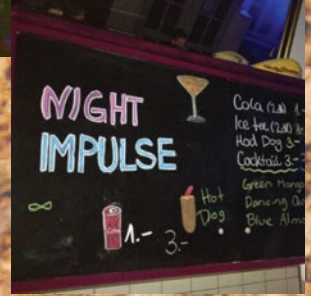 NIGHT
IMPULSE
Cola (2dl) 1.-
Ice tea (2dl)
Hod Dog 3-
Cocktail 3.-
Green Mango
Dancing
Blue
Hot
Dog
1.-
3.-